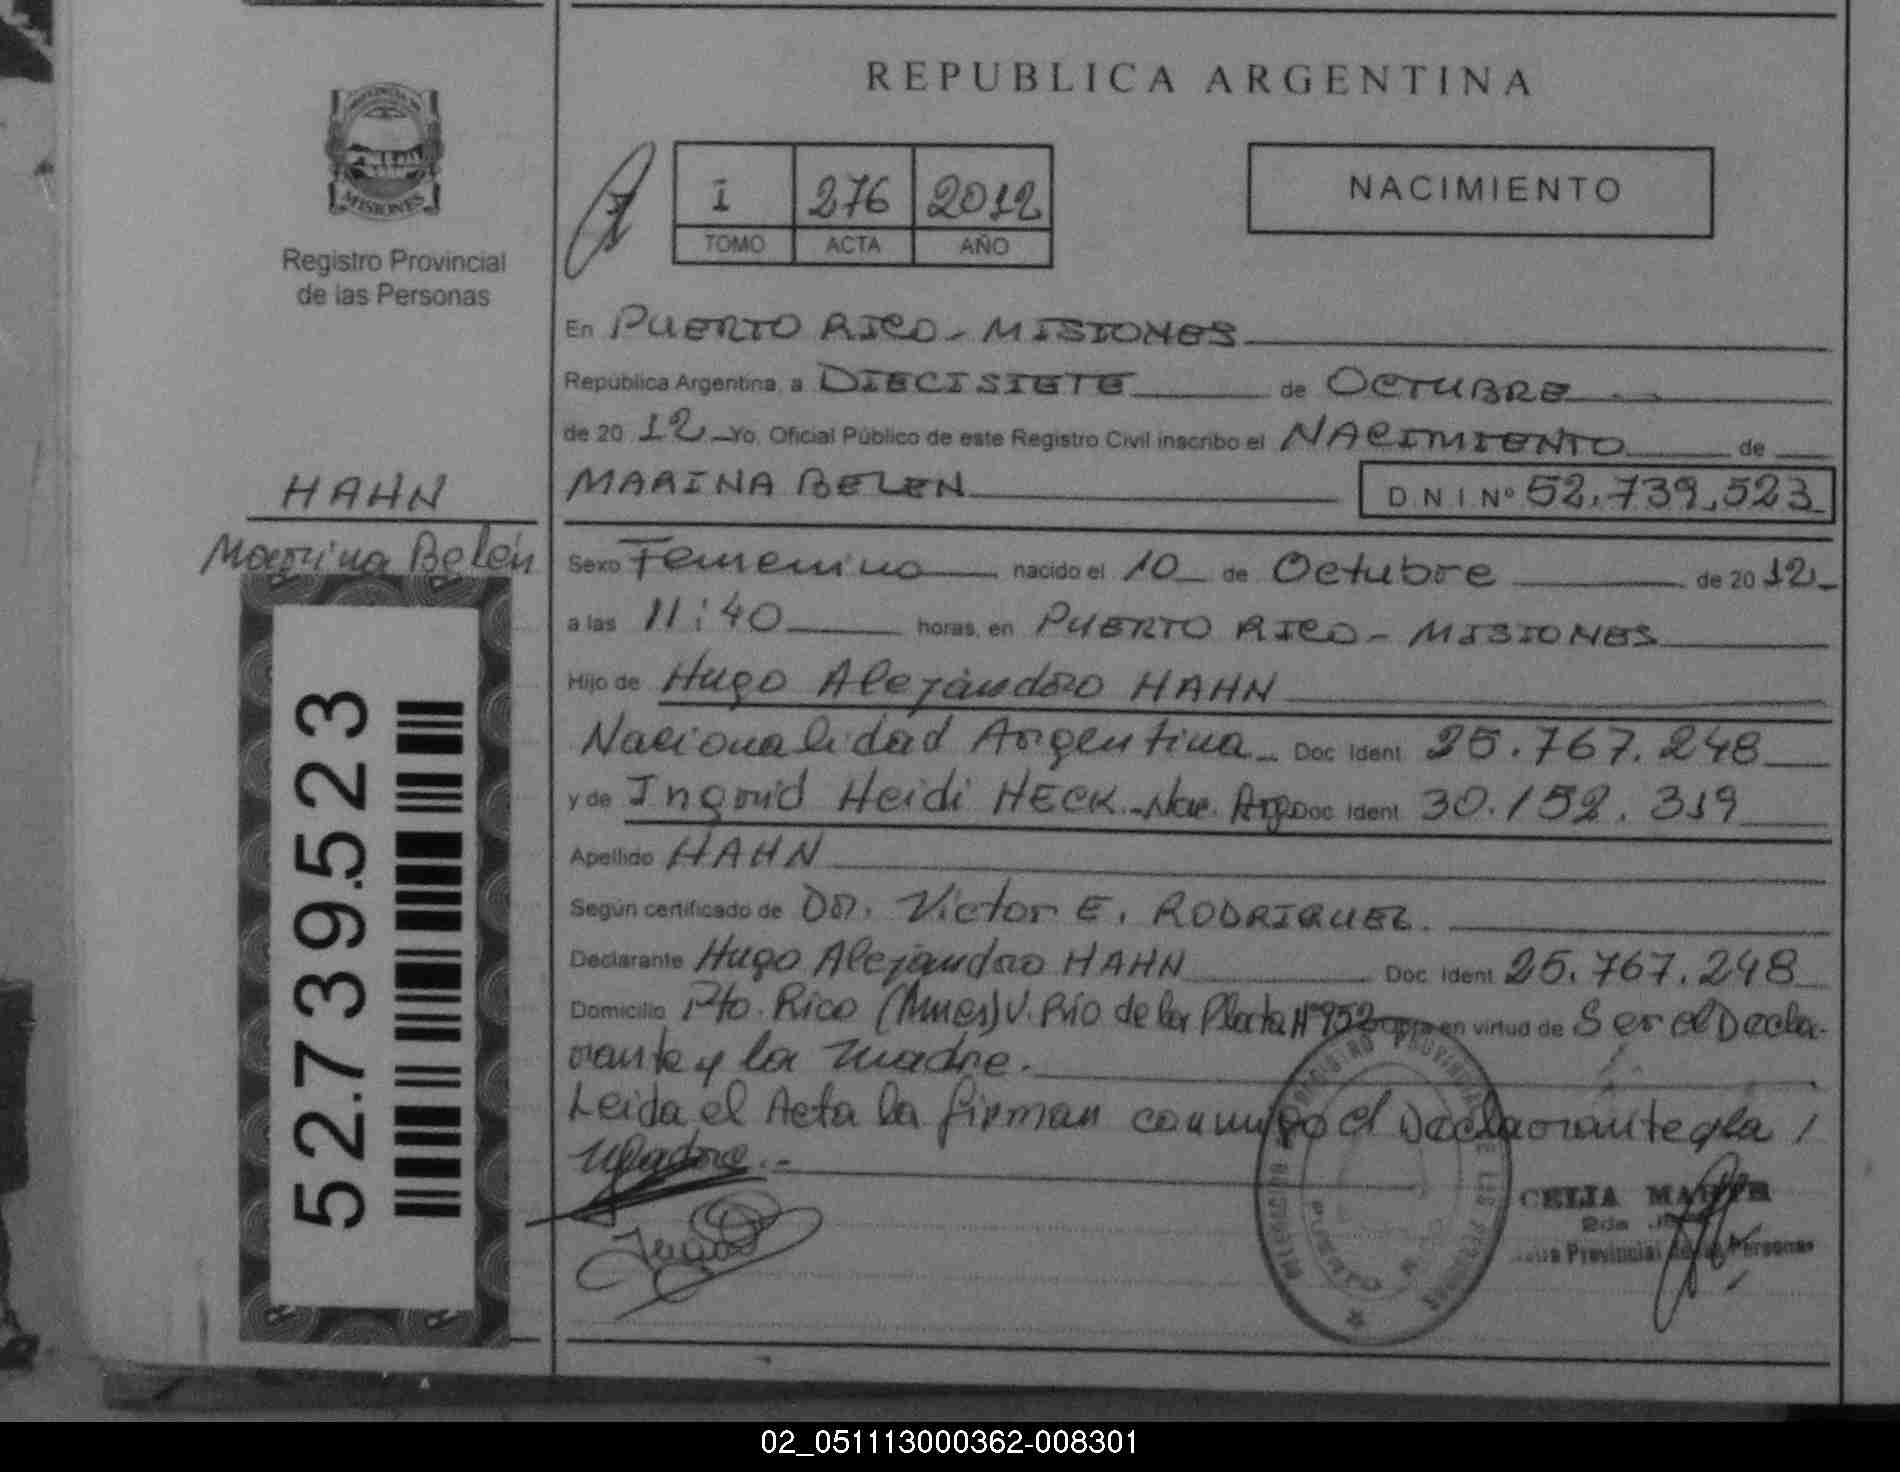 REPUBLICA ARGENTINA
MISIONES
Registro Provincial
de las Personas
I 276 2012
TOMO ACTA AÑO
NACIMIENTO
En PUERTO RICO - MISIONES
República Argentina, a DIECISIETE de OCTUBRE
de 20 12 Yo, Oficial Público de este Registro Civil inscribo el NACIMIENTO de
MARINA BELEN D.N.I Nº 52.739.523
HAHN
Marina Belén
52.739.523
Sexo Femenino nacido el 10 de Octubre de 20 12
a las 11:40 horas, en PUERTO RICO - MISIONES
Hijo de Hugo Alejandro HAHN
Nacionalidad Argentina Doc Ident 25.767.248
y de Ingrid Heidi HECK.-Nac. Arg. Doc Ident 30.152.319
Apellido HAHN
Según certificado de DR. Victor E. RODRIGUEZ.
Declarante Hugo Alejandro HAHN Doc. Ident 25.767.248
Domicilio Pto. Rico (Mnes) V. Río de la Plata Nº 952 en virtud de Ser el Decla-
rante y la madre.
Leida el Acta la firman conmigo el Declarante y la /
Madre.-
REGISTRO PROVINCIAL DE LAS PERSONAS
CELIA
Provincial de las Personas
02_051113000362-008301